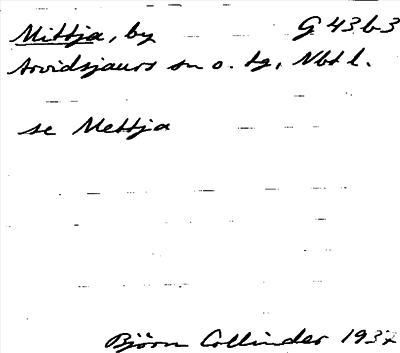 Mittja, by G 43 b 3
Arvidsjaurs sn o. tg, Nbt l.
se Mettja
Björn Collinder 1937